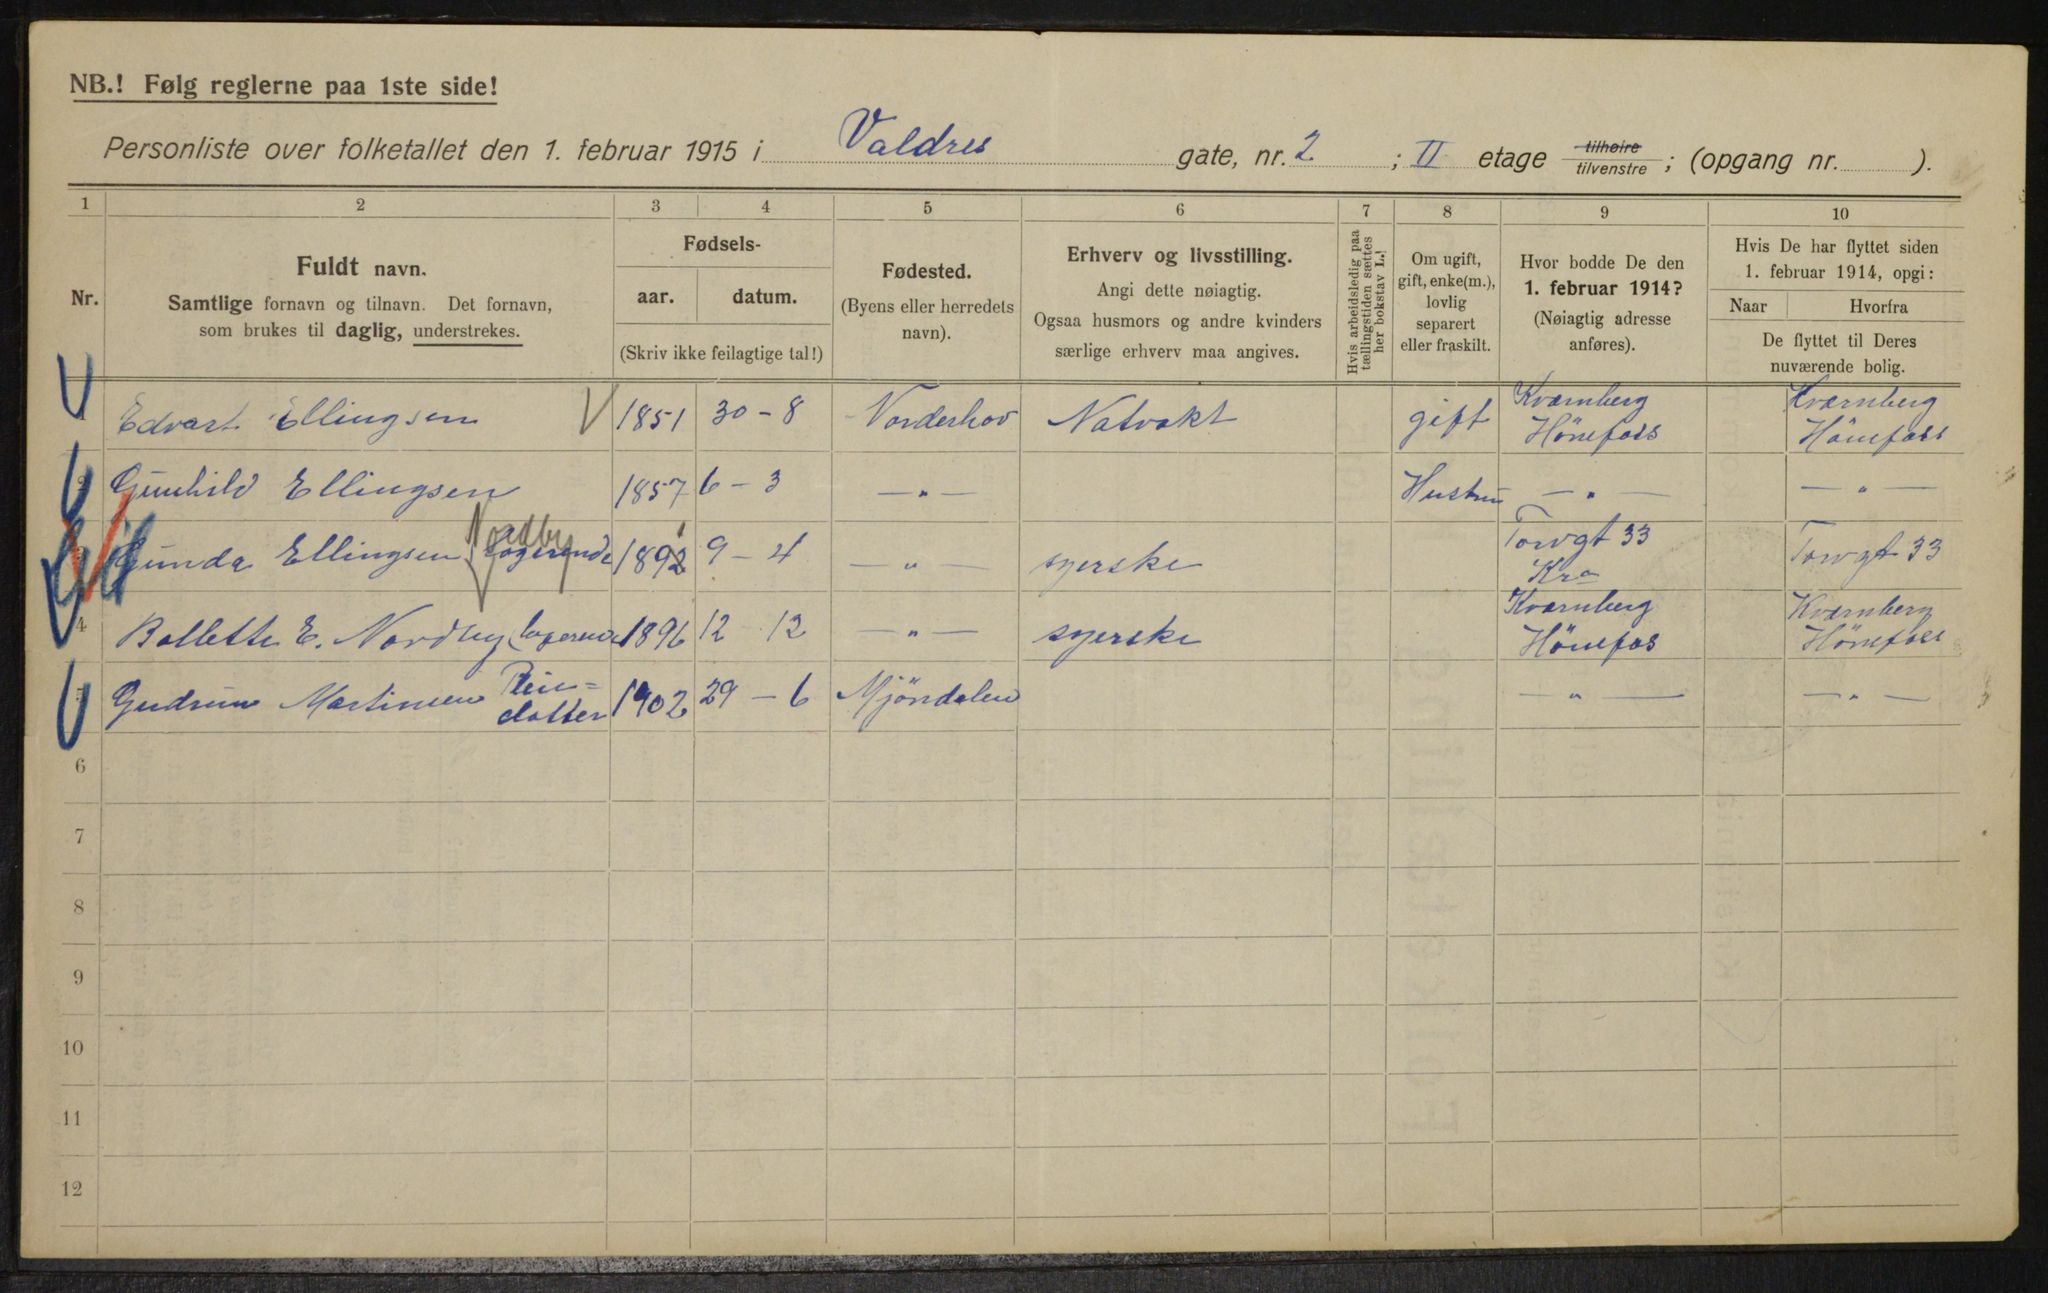 NB.! Følg reglerne paa 1ste side!
Personliste over folketallet den 1. februar 1915 i Valdres gate, nr. 2 ; II etage tilhøire tilvenstre ; (opgang nr. ).
1 2 3 4 5 6 7 8 9 10
Nr.
Fuldt navn.
Samtlige fornavn og tilnavn. Det fornavn,
som brukes til daglig, understrekes.
Fødsels-
aar. datum.
(Skriv ikke feilagtige tal!)
Fødested.
(Byens eller herredets
navn).
Erhverv og livsstilling.
Angi dette nøiagtig.
Ogsaa husmors og andre kvinders
særlige erhverv maa angives.
Hvis arbeidsledig paa
tællingstiden sættes
her bokstav L.!
Om ugift,
gift, enke(m.),
lovlig
separert
eller fraskilt.
Hvor bodde De den
1. februar 1914?
(Nøiagtig adresse
anføres).
Hvis De har flyttet siden
1. februar 1914, opgi:
Naar Hvorfra
De flyttet til Deres
nuværende bolig.
Edvart Ellingsen 1851 30 - 8 Norderhov Natvakt gift Kværnberg Hönefoss Kværnberg Hönefoss
2 Gunhild Ellingsen 1857 6 - 3 — " — Hustru — " — — " —
Nordby
3 Gunda Ellingsen logerende 1892 9 - 4 — " — syerske Torvgt 33 Kra Torvgt 33
4 Bollette E. Nordby logerende 1896 12 - 12 — " — syerske Kværnberg Hönefos Kværnberg Hönefoss
Gudrun Martinsen Pleie=
datter 1902 29 - 6 Mjöndalen — " — — " —
6
7
8
9
10
11
12